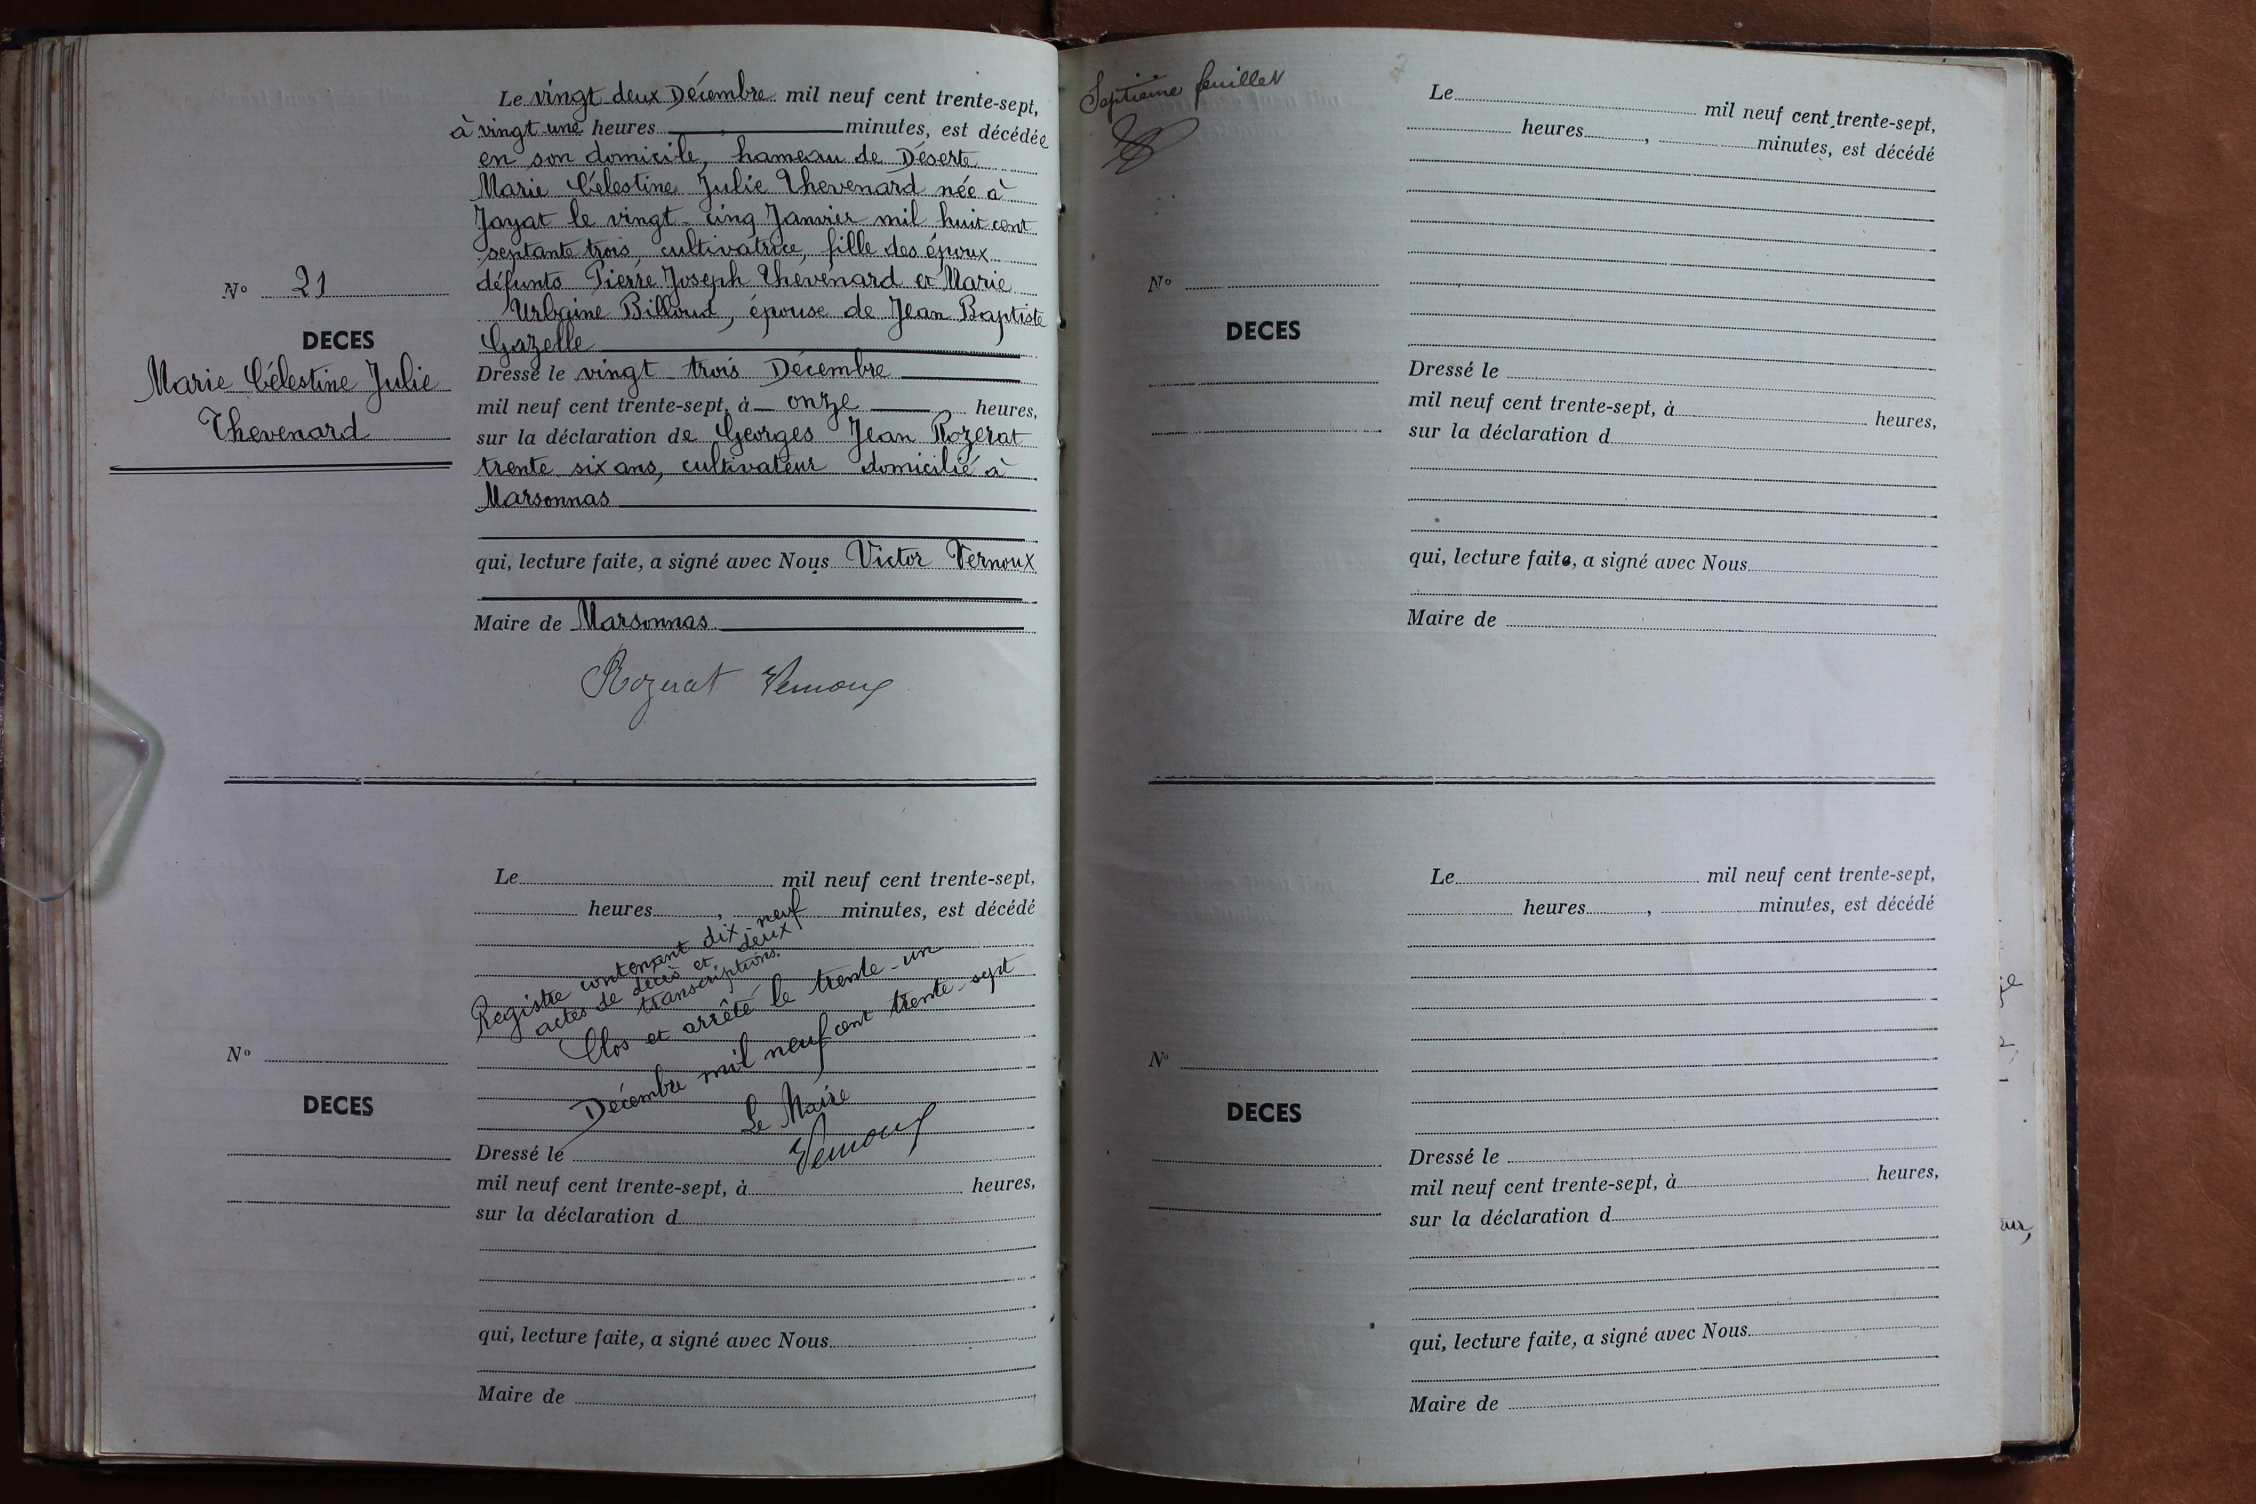 Le vingt deux Décembre mil neuf cent trente-sept,
à vingt une heures minutes, est décédée
en son domicile, hameau de Déserte
Marie Célestine Julie Thevenard née à
Jayat le vingt-cinq Janvier mil huit cent
septante trois, cultivatrice, fille des époux
défunts Pierre Joseph Thevenard et Marie
Urbaine Billoud, épouse de Jean Baptiste
Gazelle
N° 21
DECES
Marie Célestine Julie
Thevenard
Dressé le vingt trois Décembre
mil neuf cent trente-sept, à onze heures,
sur la déclaration de Georges Jean Rozerat
trente six ans, cultivateur domicilié à
Marsonnas
qui, lecture faite, a signé avec Nous Victor Vernoux
Maire de Marsonnas
Rozerat Vernoux
Le mil neuf cent trente-sept,
heures , minutes, est décédé
Registre contenant dix-neuf
actes de décès et deux
transcriptions.
Clos et arrêté le trente-un
Décembre mil neuf cent trente-sept
Le Maire
Vernoux
N°
DECES
Dressé le
mil neuf cent trente-sept, à heures,
sur la déclaration d
qui, lecture faite, a signé avec Nous
Maire de
Septième feuillet
Le mil neuf cent trente-sept,
heures , minutes, est décédé
N°
DECES
Dressé le
mil neuf cent trente-sept, à heures,
sur la déclaration d
qui, lecture faite, a signé avec Nous
Maire de
Le mil neuf cent trente-sept,
heures , minutes, est décédé
N°
DECES
Dressé le
mil neuf cent trente-sept, à heures,
sur la déclaration d
qui, lecture faite, a signé avec Nous
Maire de